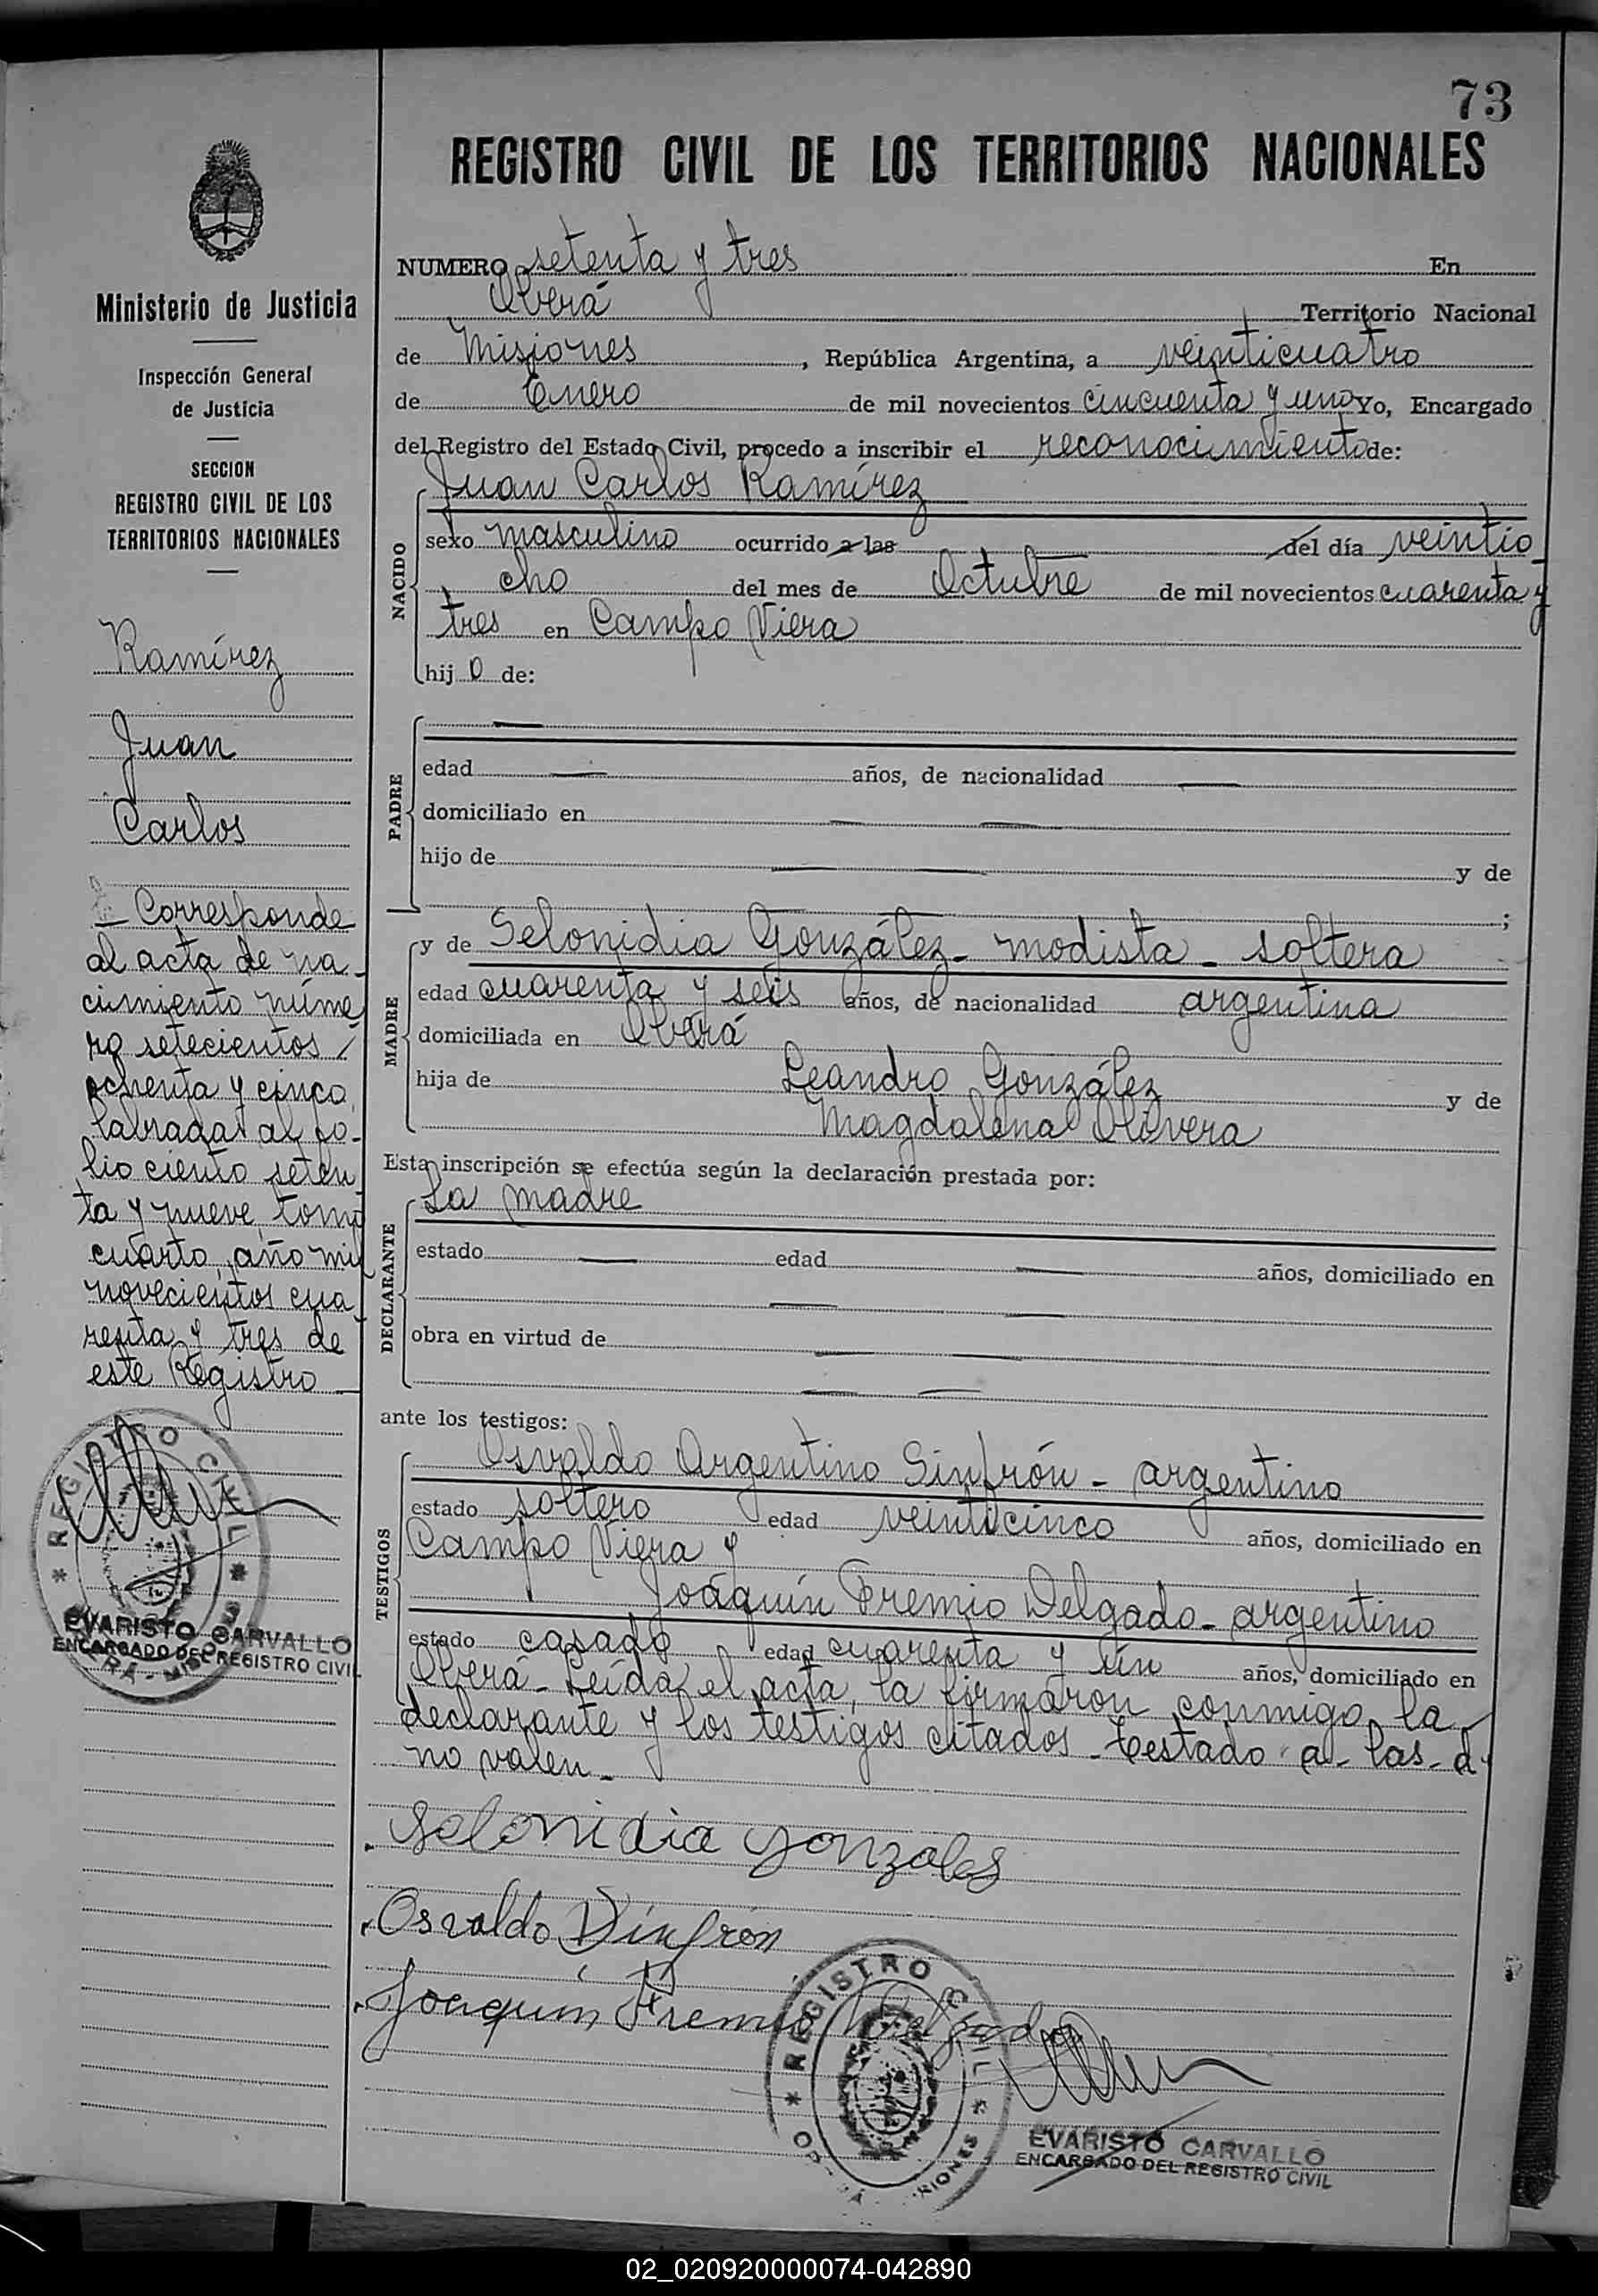 73
REGISTRO CIVIL DE LOS TERRITORIOS NACIONALES
NUMERO setenta y tres En
Oberá Territorio Nacional
de Misiones, República Argentina, a veinticuatro
de Enero de mil novecientos cincuenta y uno Yo, Encargado
del Registro del Estado Civil, procedo a inscribir el reconocimiento de:
NACIDO
Juan Carlos Ramírez
sexo masculino ocurrido a las del día veintio
cho del mes de Octubre de mil novecientos cuarenta y
tres en Campo Viera
hijo de:
PADRE
edad años, de nacionalidad
domiciliado en
hijo de y de
;
MADRE
y de Selonidia González - modista - soltera
edad cuarenta y seis años, de nacionalidad argentina
domiciliada en Oberá
hija de Leandro González y de
Magdalena Olivera
Esta inscripción se efectúa según la declaración prestada por:
DECLARANTE
La madre
estado edad años, domiciliado en
obra en virtud de
ante los testigos:
TESTIGOS
Osvaldo Argentino Sinfrón - argentino
estado soltero edad veinticinco años, domiciliado en
Campo Viera y
Joaquín Fremio Delgado - argentino
estado casado edad cuarenta y un años, domiciliado en
Oberá - Leída el acta, la firmaron conmigo la
declarante y los testigos citados - testado - a - las - d
no valen -
Selonidia Gonzales
Osvaldo Sinfrón
Joaquin Fremio Delgado
REGISTRO CIVIL
EVARISTO CARVALLO
ENCARGADO DEL REGISTRO CIVIL
Ministerio de Justicia
Inspección General
de Justicia
SECCION
REGISTRO CIVIL DE LOS
TERRITORIOS NACIONALES
Ramírez
Juan
Carlos
- Corresponde
al acta de na-
cimiento núme
ro setecientos
ochenta y cinco
labrada al fo-
lio ciento seten
ta y nueve, tomo
cuarto, año mil
novecientos cua
renta y tres de
este Registro
REGISTRO CIVIL
EVARISTO CARVALLO
ENCARGADO DEL REGISTRO CIVIL
02_020920000074-042890